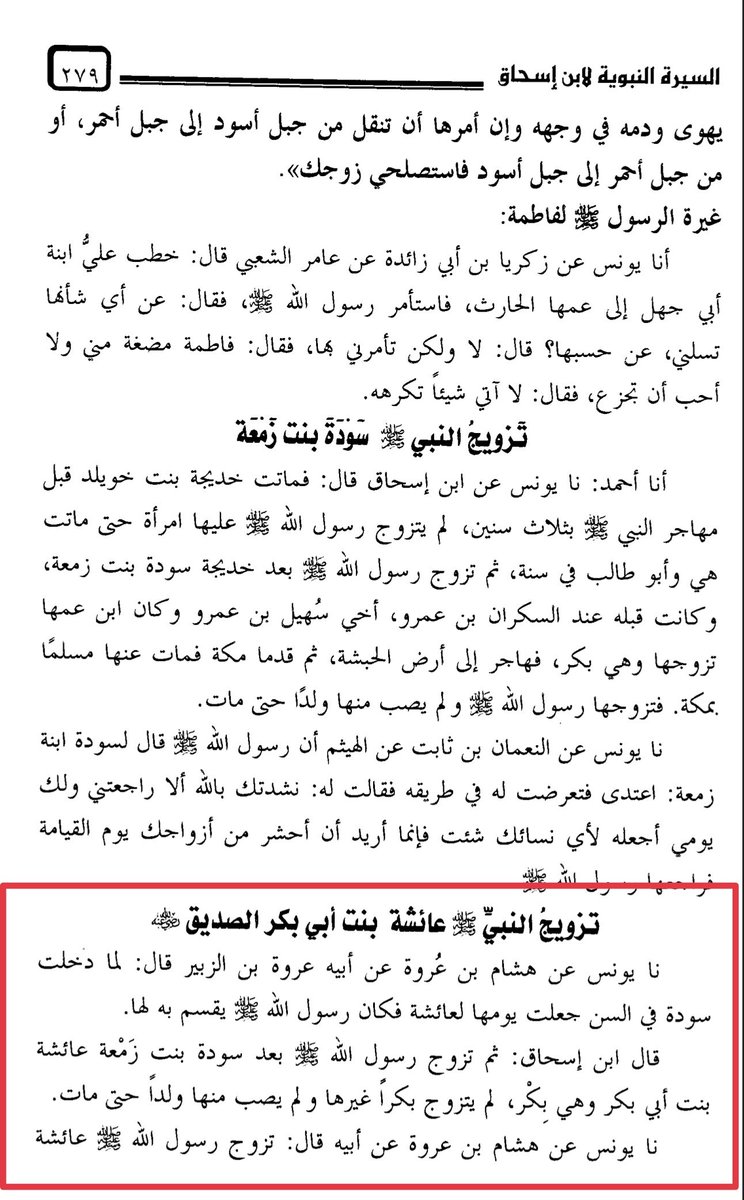 السيرة النبوية لابن إسحاق
٢٧٩
يهوى ودمه في وجهه وإن أمرها أن تنقل من جبل أسود إلى جبل أحمر، أو
من جبل أحمر إلى جبل أسود فاستصلحي زوجك».
غيرة الرسول ﷺ لفاطمة:
أنا يونس عن زكريا بن أبي زائدة عن عامر الشعبي قال: خطب عليٌّ ابنة
أبي جهل إلى عمها الحارث، فاستأمر رسول الله ﷺ، فقال: عن أي شأنها
تسلني، عن حسبها؟ قال: لا ولكن تأمرني بها، فقال: فاطمة مضغة مني ولا
أحب أن تجزع، فقال: لا آتي شيئاً تكرهه.
تَزويجُ النبي ﷺ سَوْدَةَ بنت زَمْعَة
أنا أحمد: نا يونس عن ابن إسحاق قال: فماتت خديجة بنت خويلد قبل
مهاجر النبي ﷺ بثلاث سنين، لم يتزوج رسول الله ﷺ عليها امرأة حتى ماتت
هي وأبو طالب في سنة، ثم تزوج رسول الله ﷺ بعد خديجة سودة بنت زمعة،
وكانت قبله عند السكران بن عمرو، أخي سُهيل بن عمرو وكان ابن عمها
تزوجها وهي بكر، فهاجر إلى أرض الحبشة، ثم قدما مكة فمات عنها مسلمًا
بمكة. فتزوجها رسول الله ﷺ ولم يصب منها ولدًا حتى مات.
نا يونس عن النعمان بن ثابت عن الهيثم أن رسول الله ﷺ قال لسودة ابنة
زمعة: اعتدى فتعرضت له في طريقه فقالت له: نشدتك بالله ألا راجعتني ولك
يومي أجعله لأي نسائك شئت فإنما أريد أن أحشر من أزواجك يوم القيامة
فراجعها رسول الله ﷺ
تزويجُ النبيِّ ﷺ عائشة بنت أبي بكر الصديق رضي الله عنه
نا يونس عن هشام بن عُروة عن أبيه عروة بن الزبير قال: لما دخلت
سودة في السن جعلت يومها لعائشة فكان رسول الله ﷺ يقسم به لها.
قال ابن إسحاق: ثم تزوج رسول الله ﷺ بعد سودة بنت زَمْعة عائشة
بنت أبي بكر وهي بِكْر، لم يتزوج بكراً غيرها ولم يصب منها ولداً حتى مات.
نا يونس عن هشام بن عروة عن أبيه قال: تزوج رسول الله ﷺ عائشة